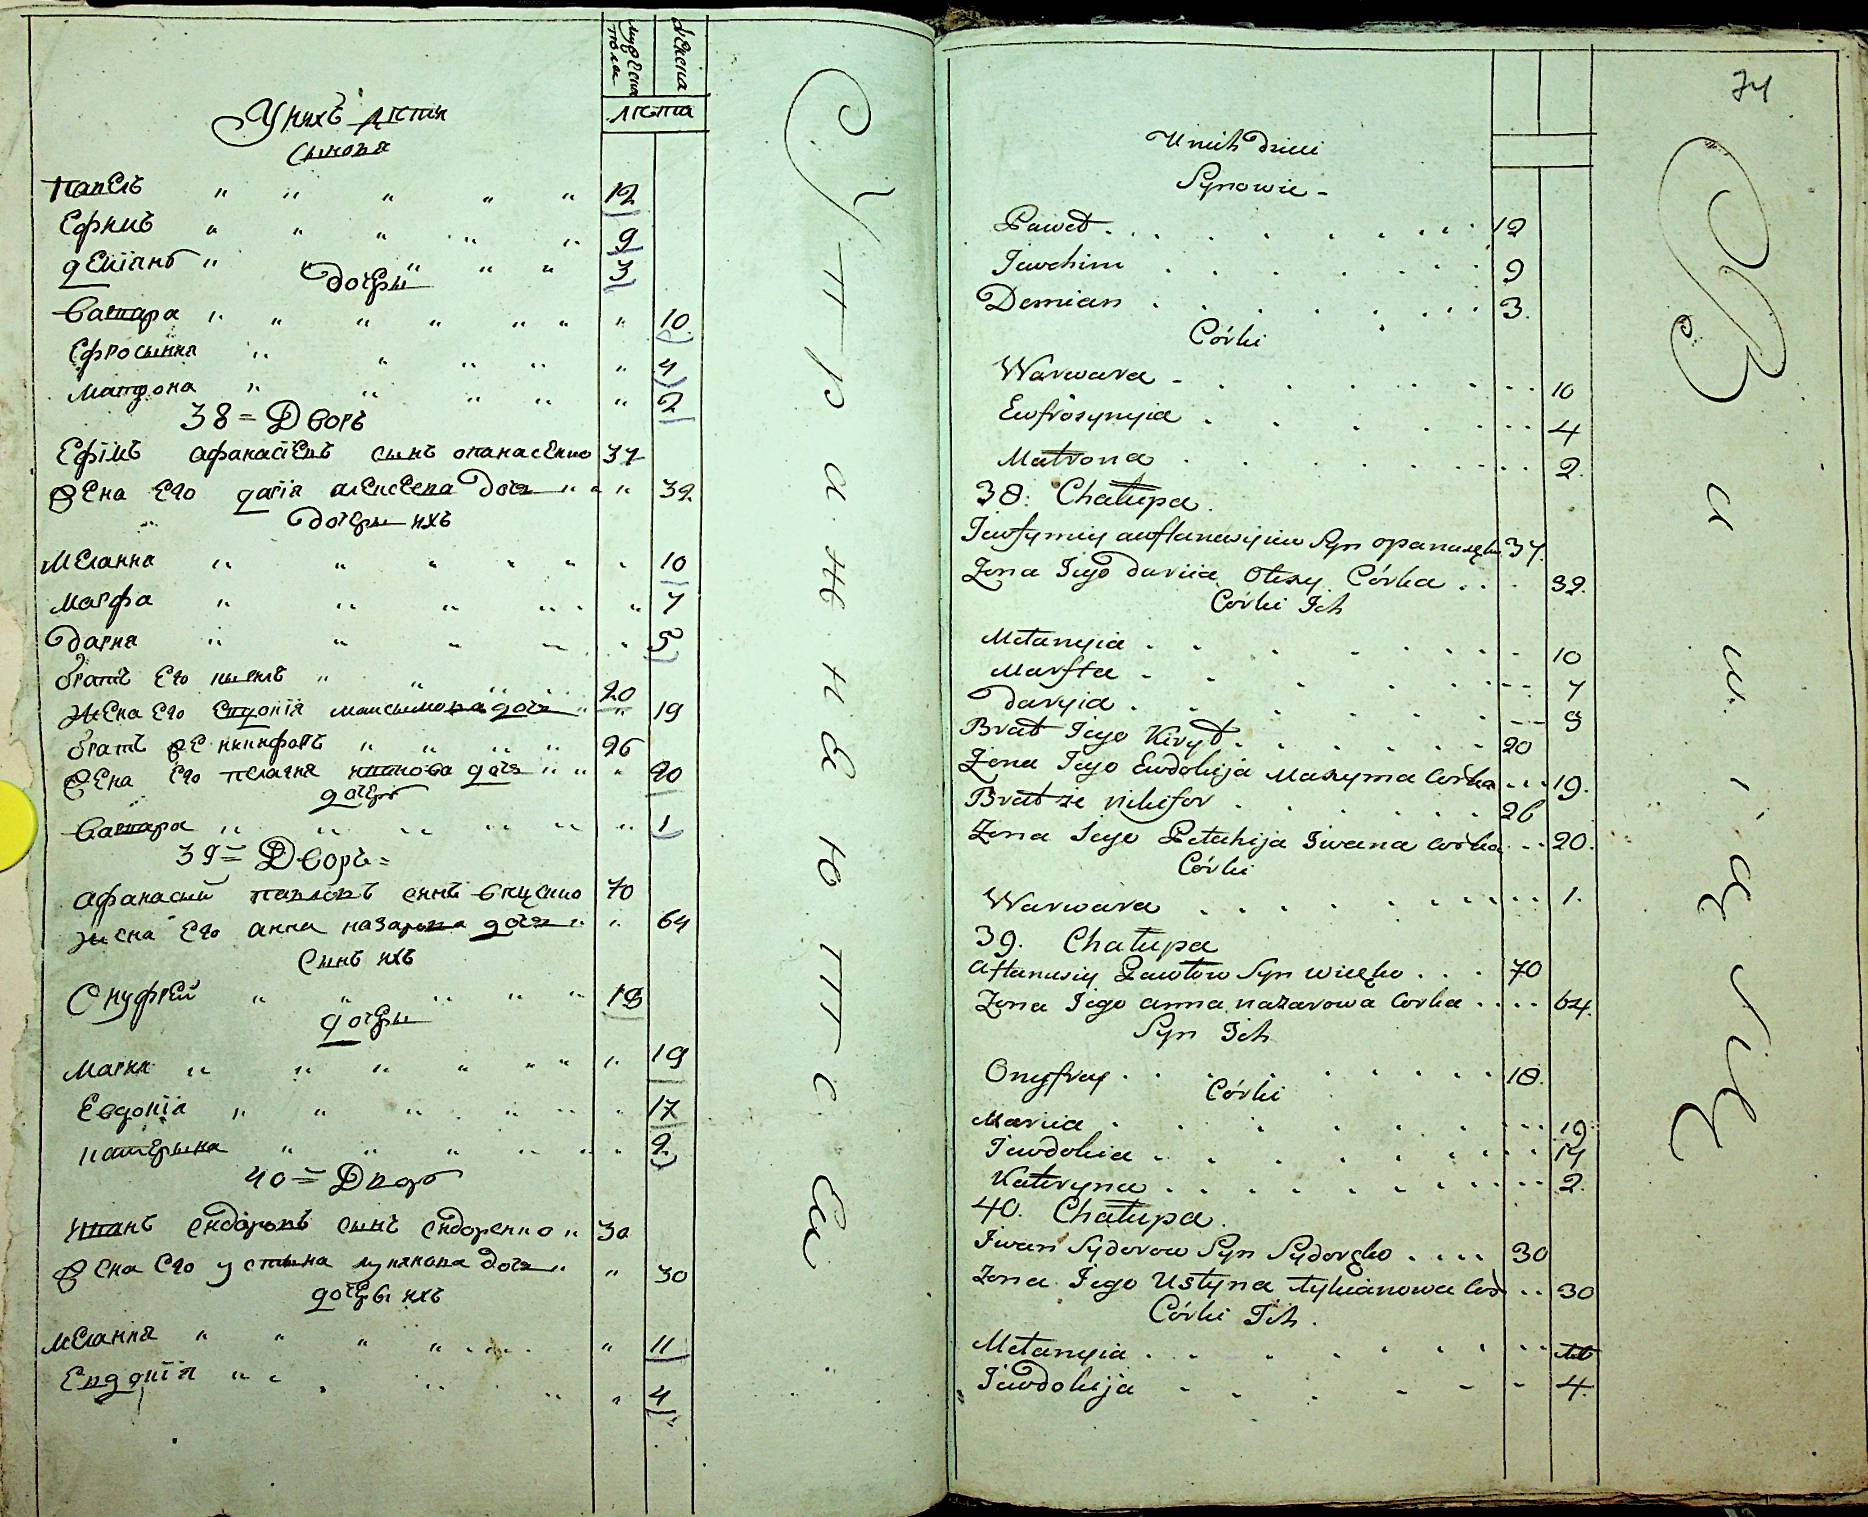 мужеска пола
женска
лета
У нихъ дети
Сынова
Павелъ 12
Ефимъ 9
Деміянъ 3
дочеры
Варвара " 10
Ефросынна " 4
Матрона " 2
38 = Дворъ
Ефімъ афанасіевъ сынъ опанасенко 37
Жена Его дарія алексеева дочь " 32
дочеры ихъ
Меланна " 10
Марфа " 7
Дарья " 5
братъ Его 20
Жена Его Евдокія максымова дочь " 19
братъ же никифоръ 26
Жена Его пелагия иванова дочь " 20
дочеръ
Варвара " 1
39 = Дворъ =
афанасий павловъ сынъ 70
Жена Его анна назарова дочь " 64
Сынъ ихъ
Онуфрей 18
дочеры
Мария " 19
Евдокіа " 17
катерына " 2
40 = Дворъ
Иванъ сидоровъ сынъ сидоренко " 30
Жена Его устына лукянова дочь " 30
дочеры ихъ
Меланна " 11
Евдокія " 4
С У п р а ж н ю т с
74
U nich Dzieci
Synowie -
Paweł 12
Jewchim 9
Demian 3.
Córki
Warwara - 10
Eufrosynyia 4
Matrona 2.
38. Chałupa.
Jewfymiy Syn 37.
Żona Jego Dariia Córka 32.
Córki Ich
Mełanyia 10
Marfta 7
Daryia 5
Brat Jego Kirył 20
Żona Jego Ewdokija Maxyma Córka 19.
Brat że nikifor 26
Żona Jego Pełahija Iwana Corka 20.
Córki
Warwara 1.
39. Chałupa
aftanasiy Pawłow Syn 70
Żona Jego anna nazarowa Corka 64.
Syn Ich
Onyfrey 18.
Córki
Mariia 19
Jewdokia 17
Kateryna 2.
40. Chałupa.
Iwan Sydorow Syn Sydoręko 30
Żona Jego Ustyna łykianowa Cor 30
Córki Ich.
Mełanyia
Jewdokija 4.